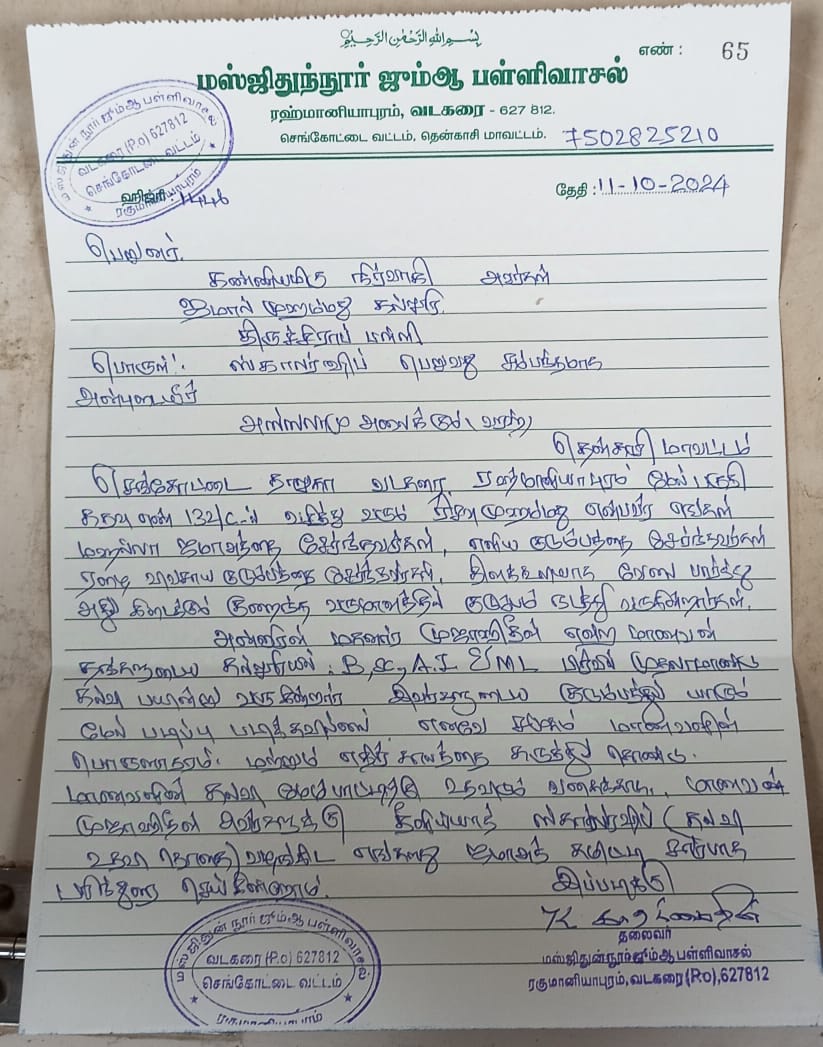 بِسْمِ اللهِ الرَّحْمٰنِ الرَّحِيْمِ
எண் : 65
மஸ்ஜிதுந்நூர் ஜும்ஆ பள்ளிவாசல்
ரஹ்மானியாபுரம், வடகரை - 627 812.
செங்கோட்டை வட்டம், தென்காசி மாவட்டம். 7502825210
மஸ்ஜிதுன் நூர் ஜும்ஆ பள்ளிவாசல்
வடகரை (P.o) 627812
செங்கோட்டை வட்டம்
ரகுமானியாபுரம்
ஹிஜ்ரி : 1446
தேதி : 11-10-2024
பெறுனர்.
கண்ணியமிகு நிர்வாகி அவர்கள்
ஜமால் முஹம்மது கல்லூரி.
திருச்சிராப்பள்ளி
பொருள் : ஸ்காலர்ஷிப் பெறுவது சம்பந்தமாக
அன்புடையீர்
அஸ்ஸலாமு அலைக்கும் (வரஹ்)
தென்காசி மாவட்டம்
செங்கோட்டை தாலுகா வடகரை ரஹ்மானியாபுரம் மேல் பகுதி
கதவு எண் 132/C-ல் வசித்து வரும் முஹம்மது என்பவர் எங்கள்
மஹல்லா ஜமாஅத்தை சேர்ந்தவர்கள், எளிய குடும்பத்தை சேர்ந்தவர்கள்
ஏழை விவசாய குடும்பத்தை சேர்ந்தவர்கள், வேலை பார்த்து
அதில் கிடைக்கும் குறைந்த வருமானத்தில் குடும்பம் நடத்தி வருகின்றார்கள்.
அன்னாரின் மகனார் முஜாஹிதீன் என்ற மாணவன்
தங்களுடைய கல்லூரியில் B.Sc, A.I & ML பிரிவில் முதலாமாண்டு
கல்வி பயின்று வருகின்றார் இவர்களுடைய குடும்பத்தில் யாரும்
மேல் படிப்பு படிக்கவில்லை எனவே மாணவனின்
பொருளாதாரம் மற்றும் எதிர் காலத்தை கருத்தில் கொண்டு
மாணவனின் கல்வி மேம்பாட்டிற்கு உதவும் வகைக்காக, மாணவன்
முஜாஹிதீன் அவர்களுக்கு ஸ்காலர்ஷிப் (கல்வி
உதவி தொகை) வழங்கிட எங்களது ஜமாஅத் கமிட்டி சார்பாக
பரிந்துரை செய்கின்றோம்.
இப்படிக்கு
தலைவர்
மஸ்ஜிதுன்நூர்ஜும்ஆ பள்ளிவாசல்
ரகுமானியாபுரம், வடகரை (P.o), 627812
மஸ்ஜிதுன் நூர் ஜும்ஆ பள்ளிவாசல்
வடகரை (P.o) 627812
செங்கோட்டை வட்டம்
ரகுமானியாபுரம்